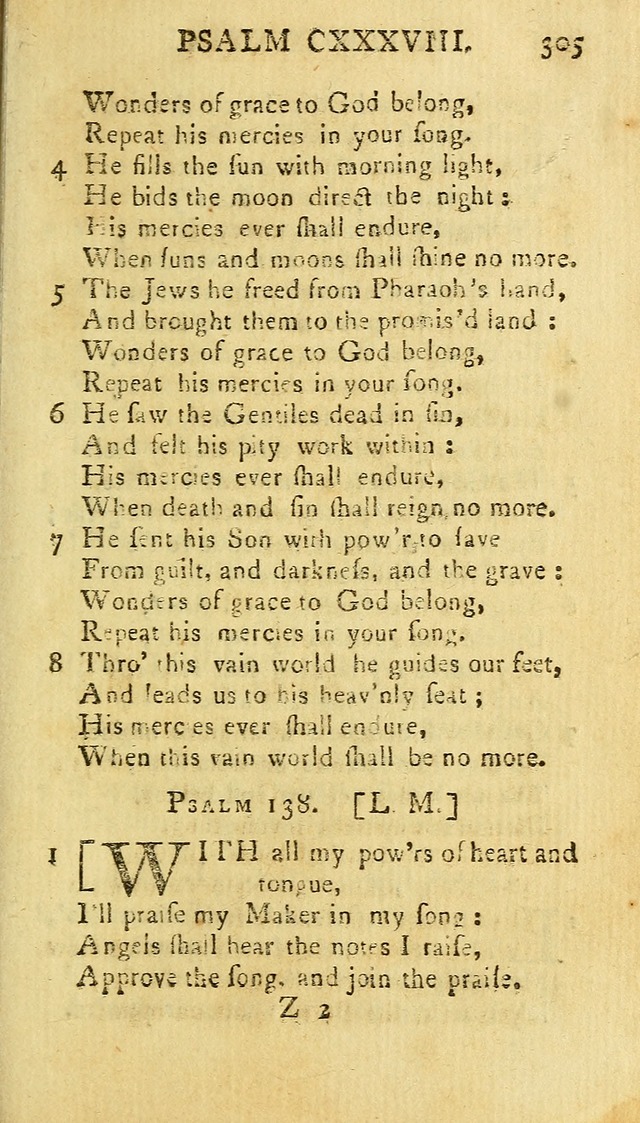 PSALM CXXXVIII. 305
Wonders of grace to God belong,
Repeat his mercies in your ſong.
4 He fills the ſun with morning light,
He bids the moon direct the night :
His mercies ever ſhall endure,
When ſuns and moons ſhall ſhine no more.
5 The Jews he freed from Pharaoh's hand,
And brought them to the promis'd land :
Wonders of grace to God belong,
Repeat his mercies in your ſong.
6 He ſaw the Gentiles dead in ſin,
And felt his pity work within :
His mercies ever ſhall endure,
When death and ſin ſhall reign no more.
7 He ſent his Son with pow'r to ſave
From guilt, and darkneſs, and the grave :
Wonders of grace to God belong,
Repeat his mercies in your ſong.
8 Thro' this vain world he guides our feet,
And leads us to his heav'nly ſeat ;
His mercies ever ſhall endure,
When this vain world ſhall be no more.
PSALM 138. [L. M.]
1 [WITH all my pow'rs of heart and
tongue,
I'll praiſe my Maker in my ſong :
Angels ſhall hear the notes I raiſe,
Approve the ſong, and join the praiſe.
Z 2